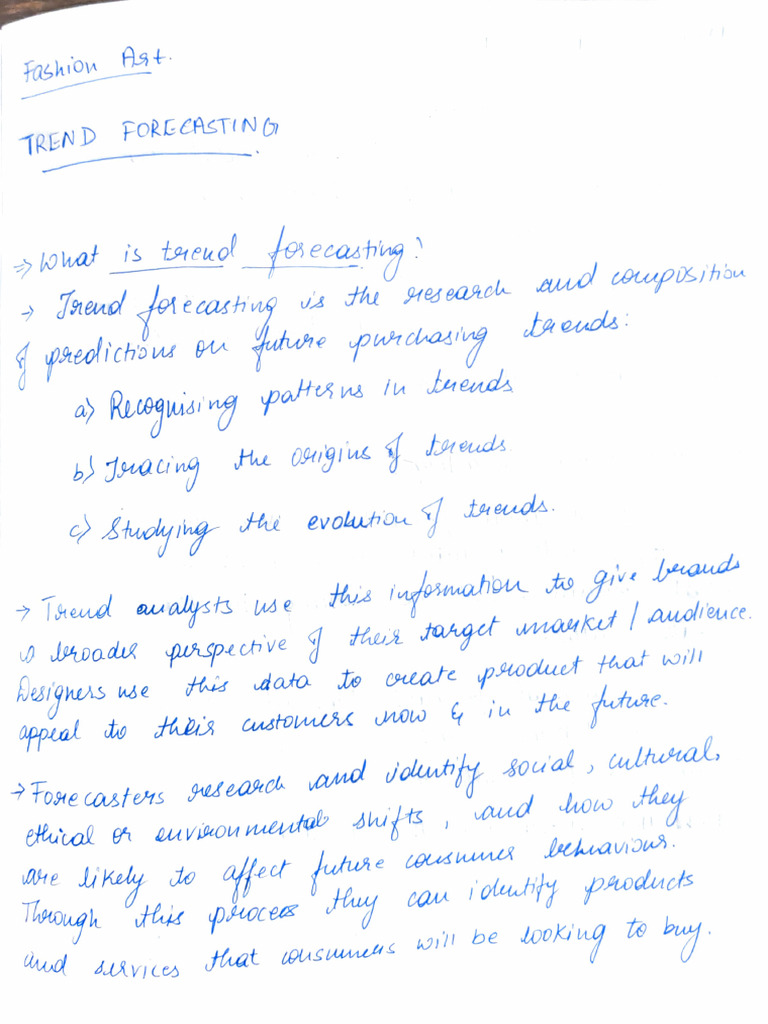 Fashion Art.
TREND FORECASTING
⇒ What is trend forecasting?
→ Trend forecasting is the research and composition
of predictions on future purchasing trends:
a) Recognising patterns in trends
b) Tracing the origins of trends
c) Studying the evolution of trends.
→ Trend analysts use this information to give brands
a broader perspective of their target market / audience.
Designers use this data to create product that will
appeal to their customers now & in the future.
→ Forecasters research and identify social, cultural,
ethical or environmental shifts, and how they
are likely to affect future consumer behaviour.
Through this process they can identify products
and services that consumers will be looking to buy.